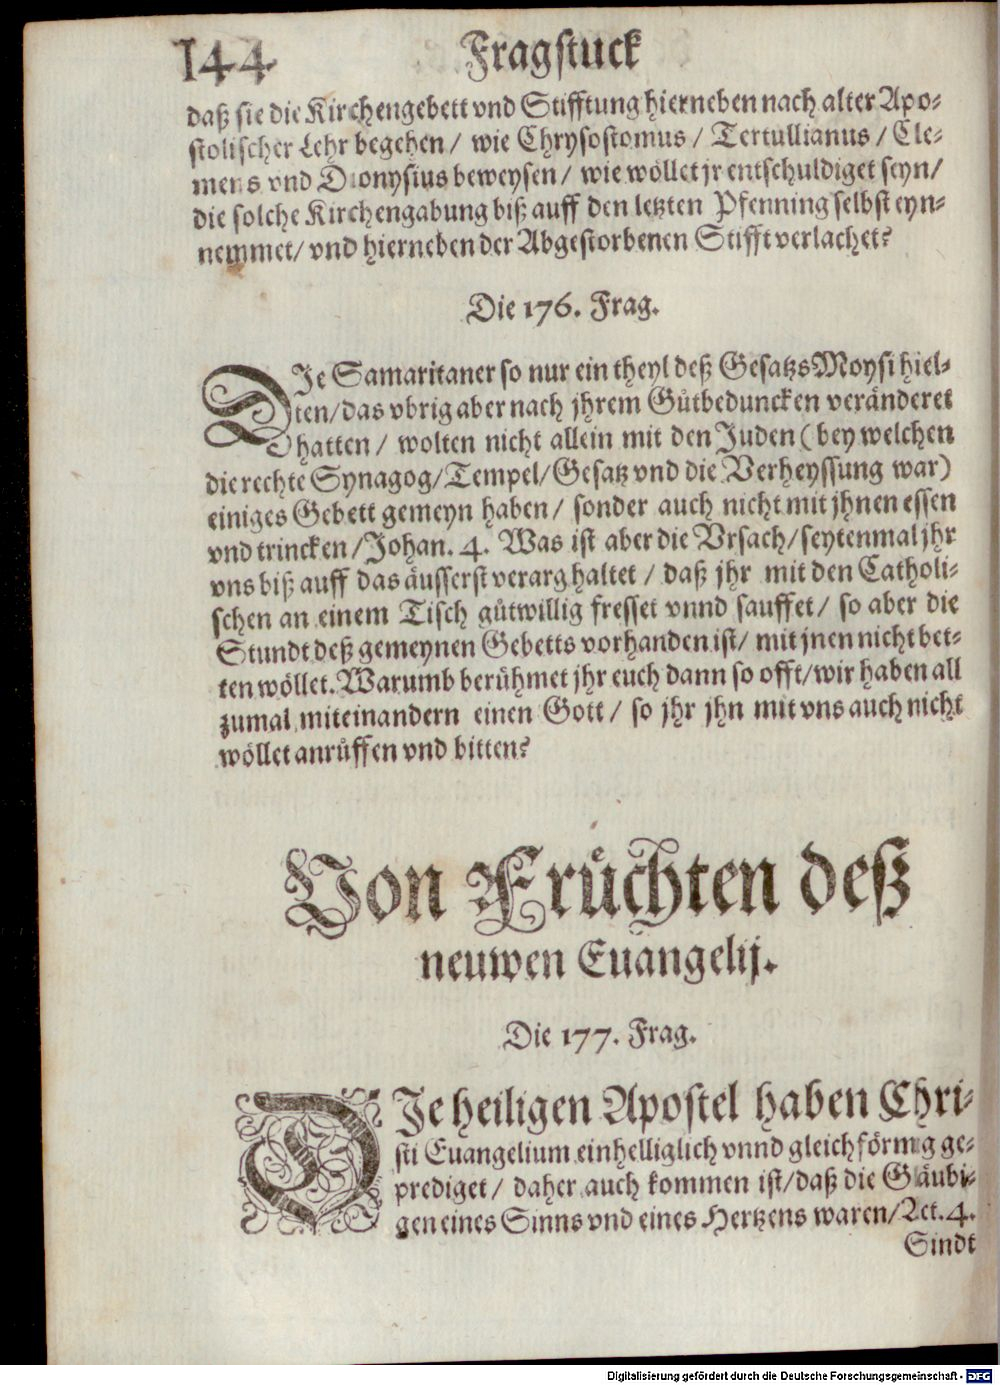 144 Fragstuck
daß sie die Kirchengebett vnd Stifftung hierneben nach alter Apo-
stolischer Lehr begehen / wie Chrysostomus / Tertullianus / Cle-
mens vnd Dionysius beweysen / wie wöllet jr entschuldiget seyn /
die solche Kirchengabung biß auff den letzten Pfenning selbst eyn-
nemmet / vnd hierneben der Abgestorbenen Stifft verlachet?
Die 176. Frag.
DIe Samaritaner so nur ein theyl deß Gesatzs Moysi hiel-
ten / das vbrig aber nach jhrem Gůtbeduncken veränderet
hatten / wolten nicht allein mit den Juden (bey welchen
die rechte Synagog / Tempel / Gesatz vnd die Verheyssung war)
einiges Gebett gemeyn haben / sonder auch nicht mit jhnen essen
vnd trincken / Johan. 4. Was ist aber die Vrsach / seytenmal jhr
vns biß auff das äusserst verarg haltet / daß jhr mit den Catholi-
schen an einem Tisch gůtwillig fresset vnnd sauffet / so aber die
Stundt deß gemeynen Gebetts vorhanden ist / mit jnen nicht bet-
ten wöllet. Warumb berühmet jhr euch dann so offt / wir haben all
zumal miteinandern einen Gott / so jhr jhn mit vns auch nicht
wöllet anrůffen vnd bitten?
Von Früchten deß
neuwen Euangelij.
Die 177. Frag.
DIe heiligen Apostel haben Chri-
sti Euangelium einhelliglich vnnd gleichförmig ge-
prediget / daher auch kommen ist / daß die Gläubi-
gen eines Sinns vnd eines Hertzens waren / Act. 4.
Sindt
Digitalisierung gefördert durch die Deutsche Forschungsgemeinschaft - DFG